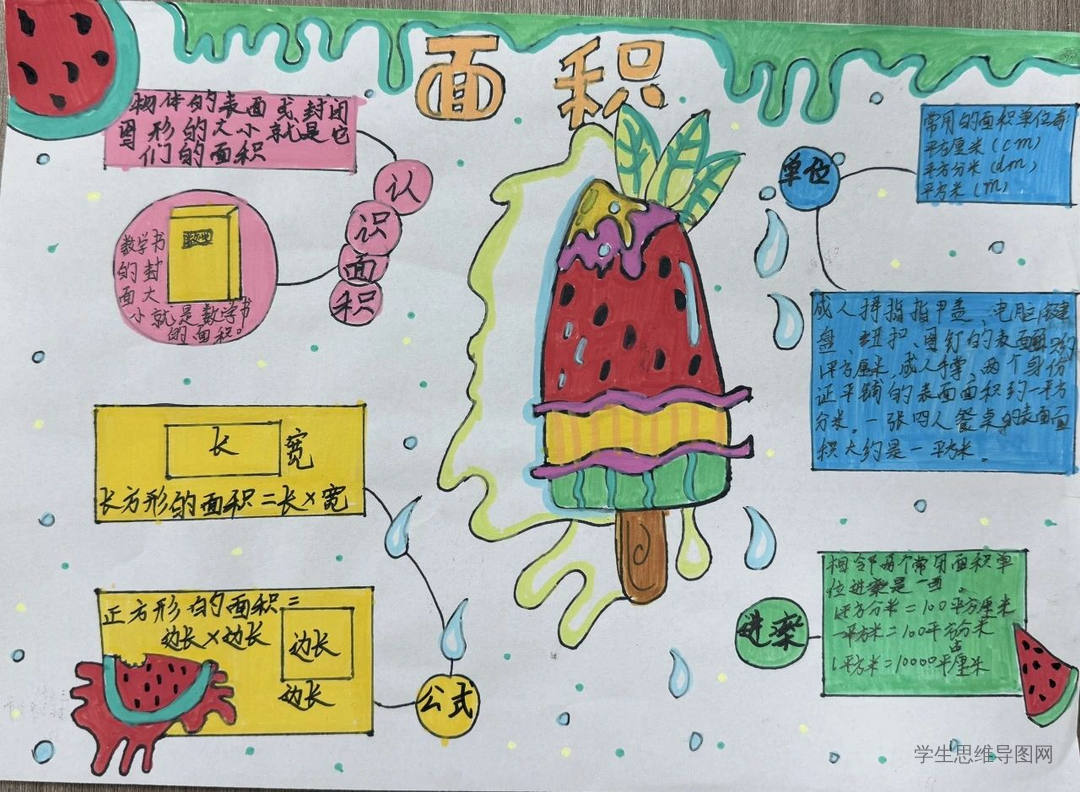 面积
物体的表面或封闭
图形的大小就是它
们的面积
认识面积
数学书
的封
面大
小就是数学书
的面积。
长
宽
长方形的面积=长×宽
正方形的面积=
边长×边长
边长
边长
公式
单位
常用的面积单位有:
平方厘米(cm)
平方分米(dm)
平方米(m)
成人拇指指甲盖、电脑键
盘、纽扣、图钉的表面
平方厘米,成人手掌,两个身份
证平铺的表面面积约一平方
分米。一张四人餐桌的表面面
积大约是一平方米。
进率
相邻两个常用面积单
位进率是一百
1平方分米=100平方厘米
一平方米=100平方分米
1平方米=10000平方厘米
学生思维导图网